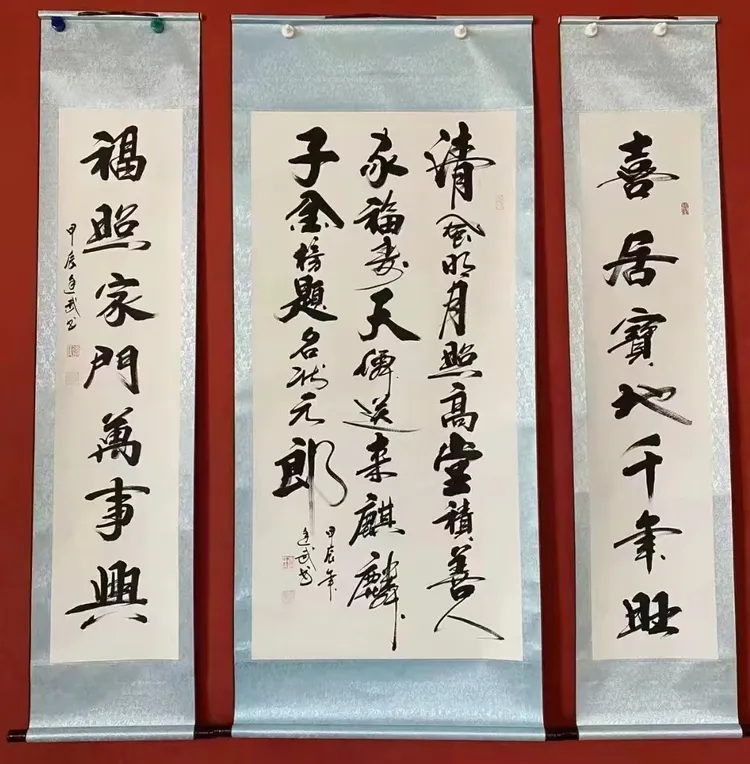 喜居寶地千年旺
清風明月照高堂積善人
家福壽天僊送来麒麟
子金榜題名狀元郎
甲辰年
武書
福照家門萬事興
甲辰武书